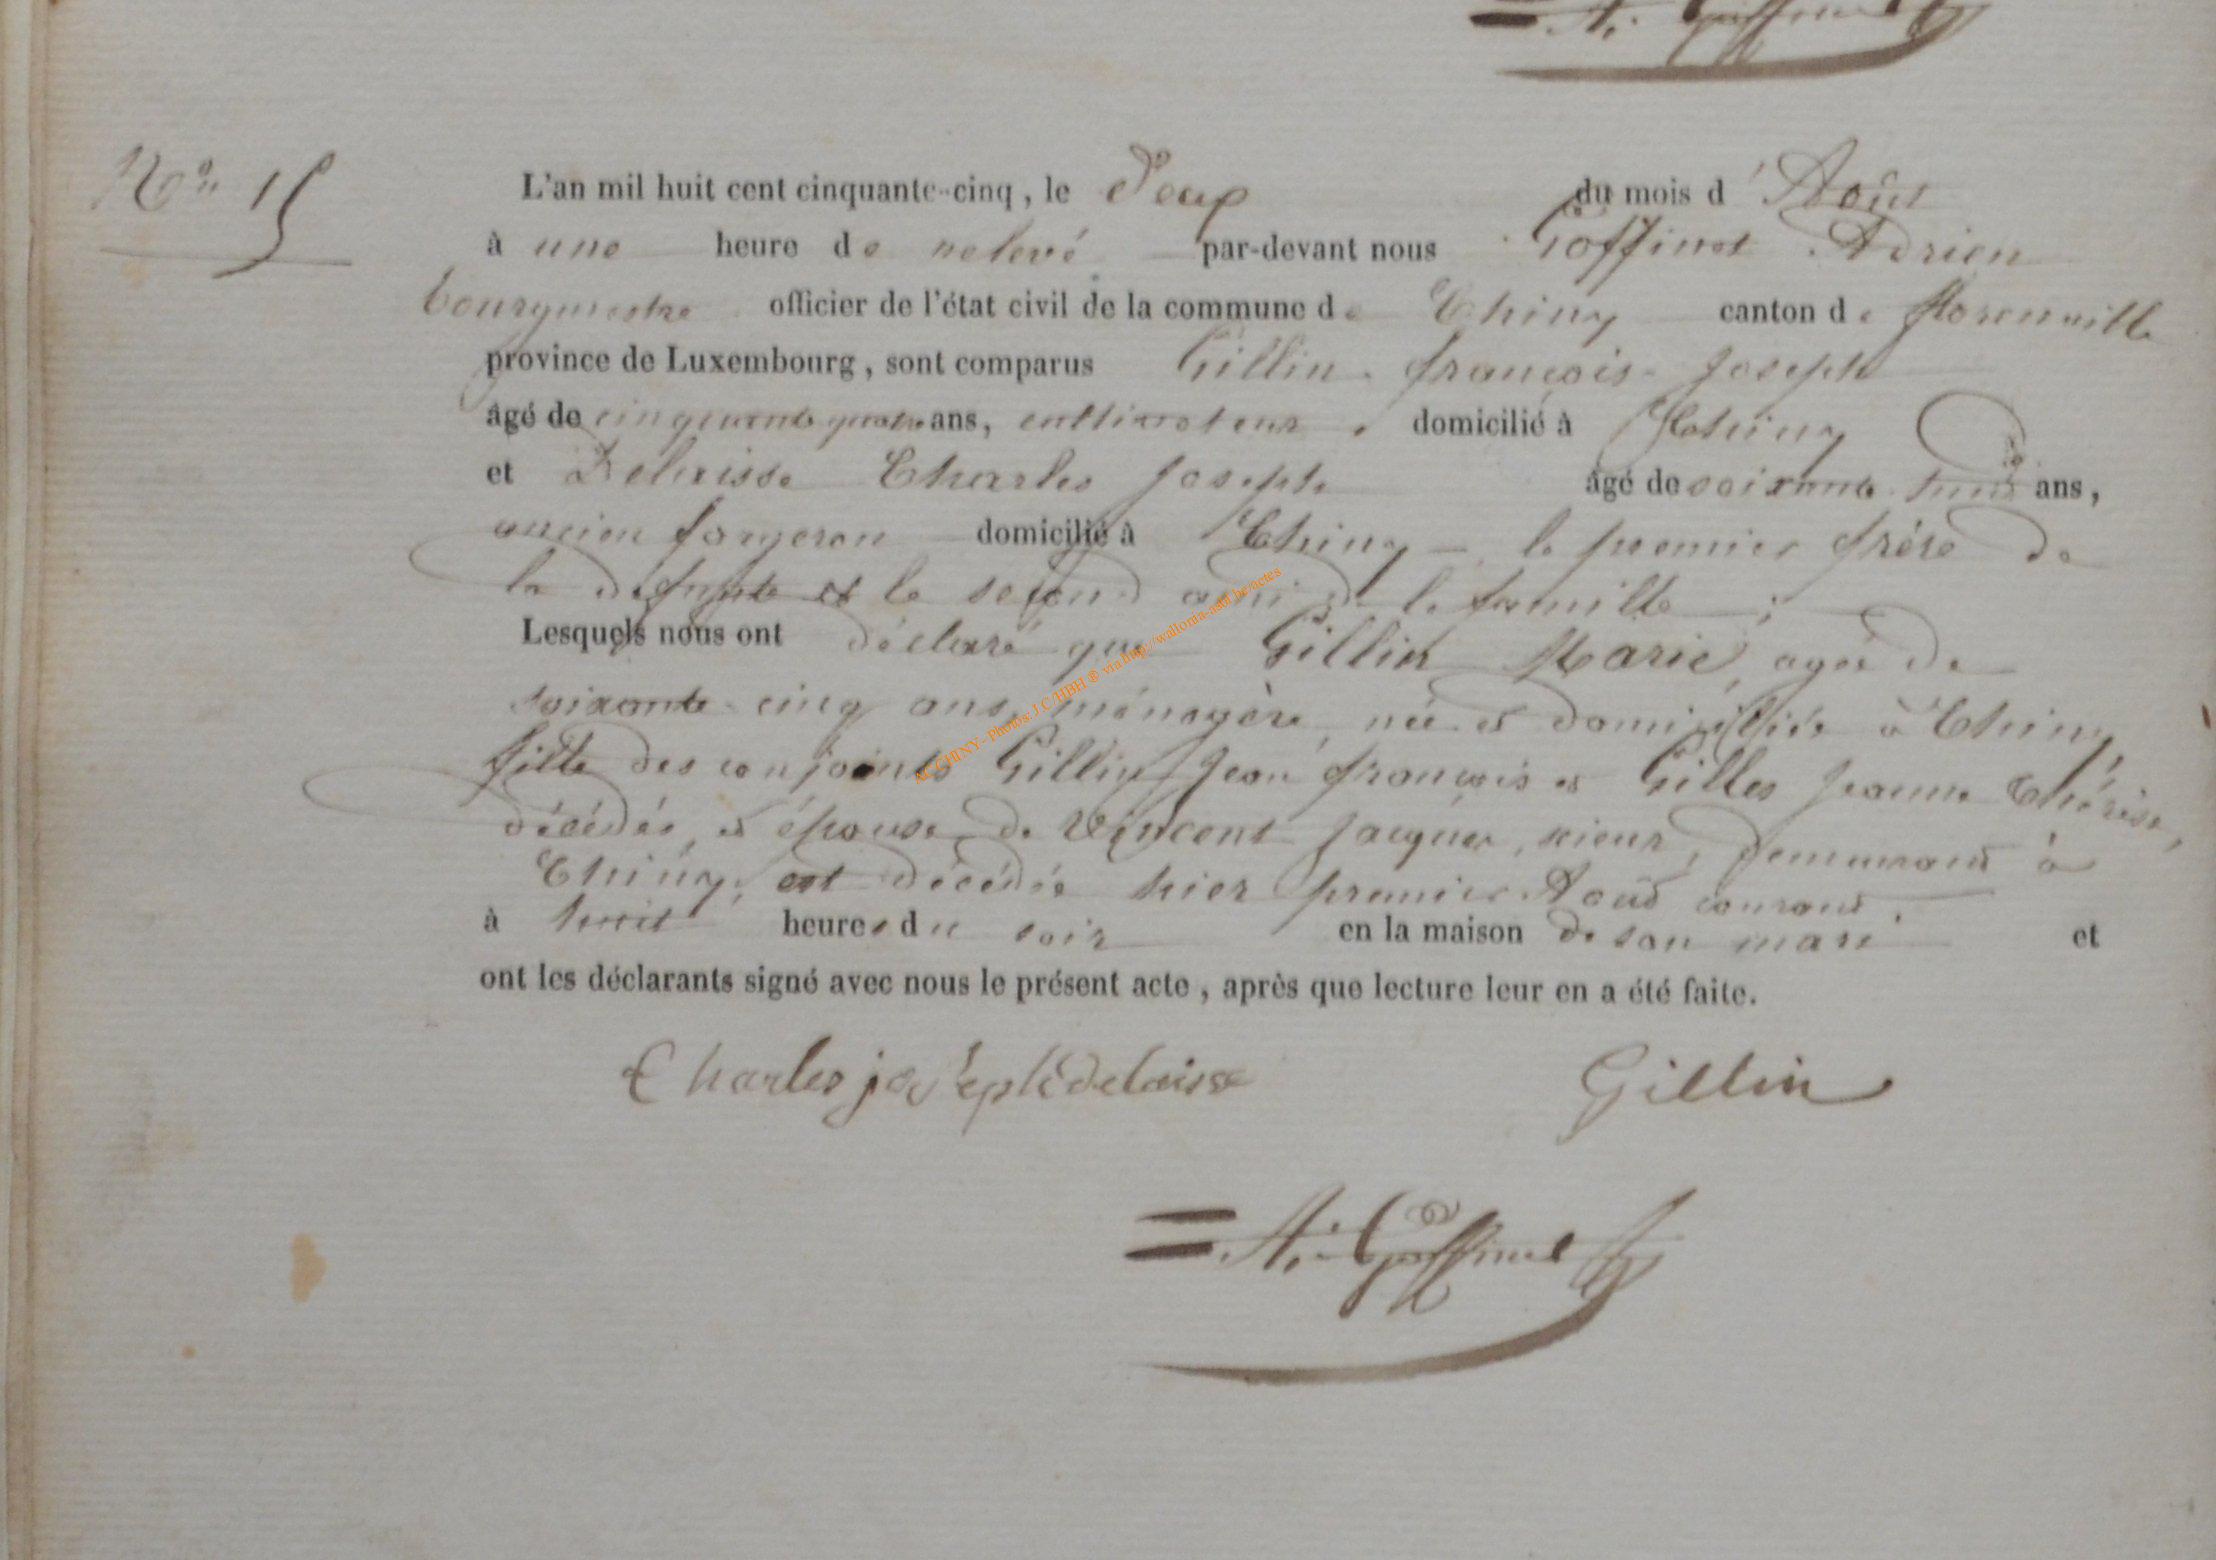 A. Goffinet
N° 15
L'an mil huit cent cinquante-cinq, le Deux du mois d'Août
à une heure de relevé par-devant nous Goffinet Adrien
bourgmestre officier de l'état civil de la commune de Chiny canton de florenville
province de Luxembourg, sont comparus Gillin françois Joseph
âgé de cinquante quatre ans, cultivateur, domicilié à Chiny
et Delaisse Charles Joseph âgé de soixante huit ans,
ancien forgeron domicilié à Chiny – le premier frère de
la défunte et le second ami de la famille ;
Lesquels nous ont déclaré que Gillin Marie, agée de
soixante-cinq ans, ménagère, née et domiciliée à Chiny,
fille des conjoints Gillin Jean françois et Gilles Jeanne Thérèse,
décédés, et épouse de Vincent Jacques, scieur, demeurant à
Chiny, est décédée hier premier Août courant,
à huit heures du soir en la maison de son mari et
ont les déclarants signé avec nous le présent acte, après que lecture leur en a été faite.
Charles joseph delaisse Gillin
A. Goffinet
AC CHINY - Photos: J.C HBH ® via http://walloma-asbl.be/actes